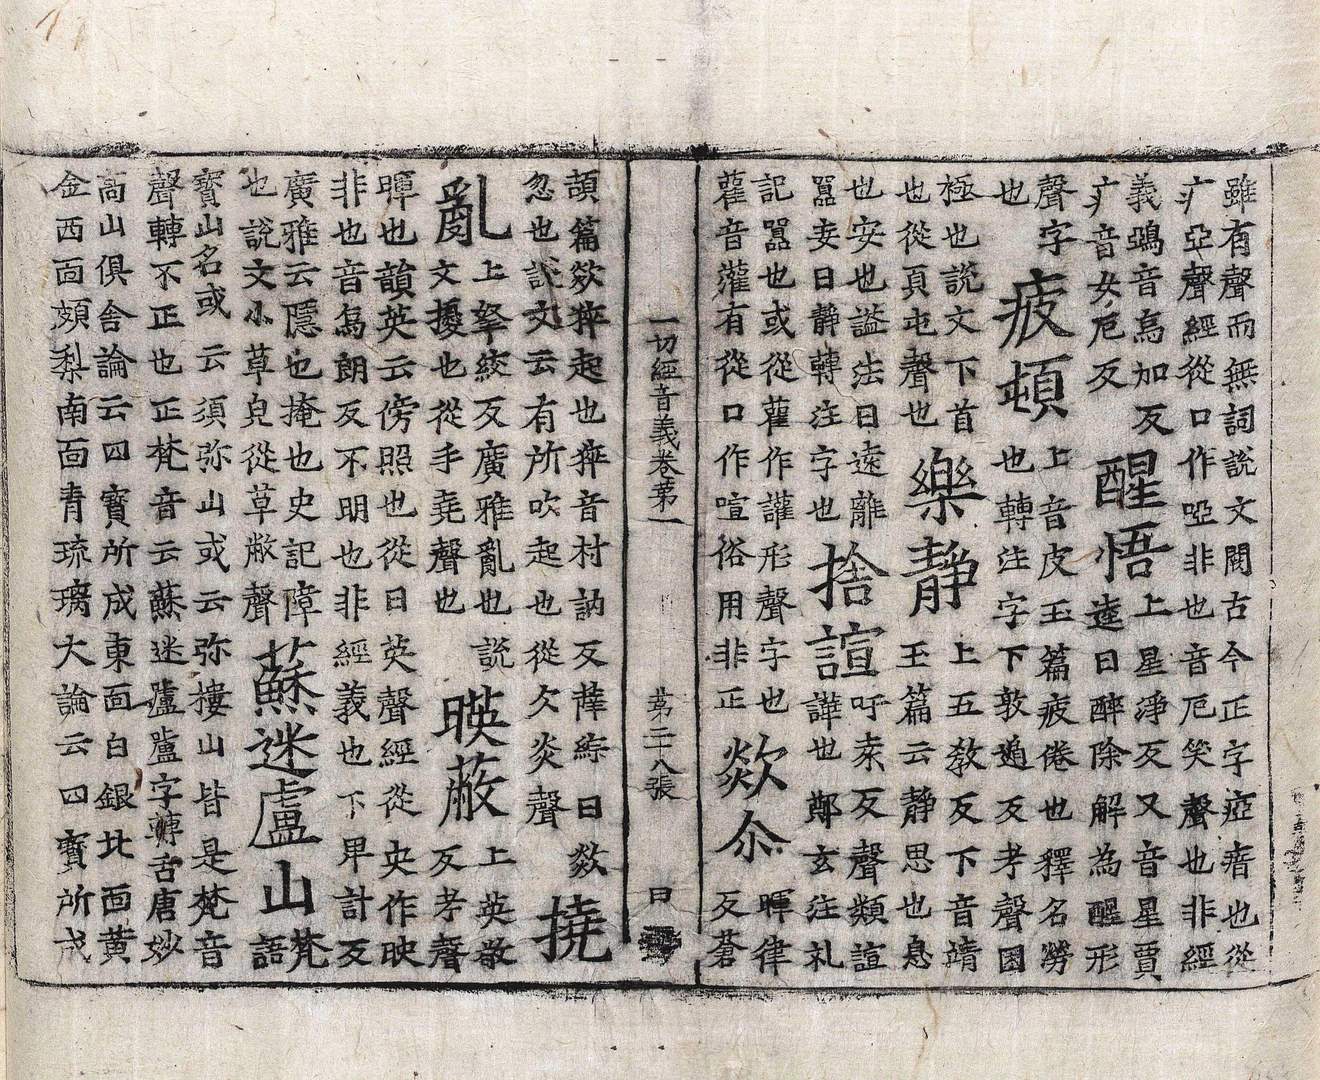 雖有聲而無詞說文闕古今正字瘂瘖也從
疒亞聲經從口作啞非也音厄笑聲也非經
義鵶音烏加反
疒音女厄反
醒悟
上星淨反又音星賈
逵曰醉除解為醒形
聲字
也
疲頓
上音皮玉篇疲倦也釋名勞
也轉注字下敦遁反考聲困
極也說文下首
也從頁屯聲也
樂静
上五教反下音靖
玉篇云静思也息
也安也謚法曰遠離
嚚妄曰静轉注字也
捨諠
吁袁反聲類諠
譁也鄭玄注礼
記嚚也或從雚作讙形聲字也
雚音灌有從口作喧俗用非正
欻尒
暉律
反蒼
一切經音義卷苐一 苐二十八張 曰
頡篇欻猝起也猝音村訥反薛綜曰欻
忽也說文云有所吹起也從欠炎聲
撓
亂
上拏絞反廣雅亂也說
文擾也從手堯聲也
暎蔽
上英敬
反考聲
暉也韻英云傍照也從日英聲經從央作映
非也音烏朗反不明也非經義也下卑計反
廣雅云隱也掩也史記障
也說文小草皃從草敝聲
蘇迷盧山
梵
語
寳山名或云須弥山或云弥摟山皆是梵音
聲轉不正也正梵音云蘇迷盧盧字轉舌唐妙
高山俱舍論云四寳所成東面白銀北面黃
金西面頗梨南面青琉璃大論云四寳所成